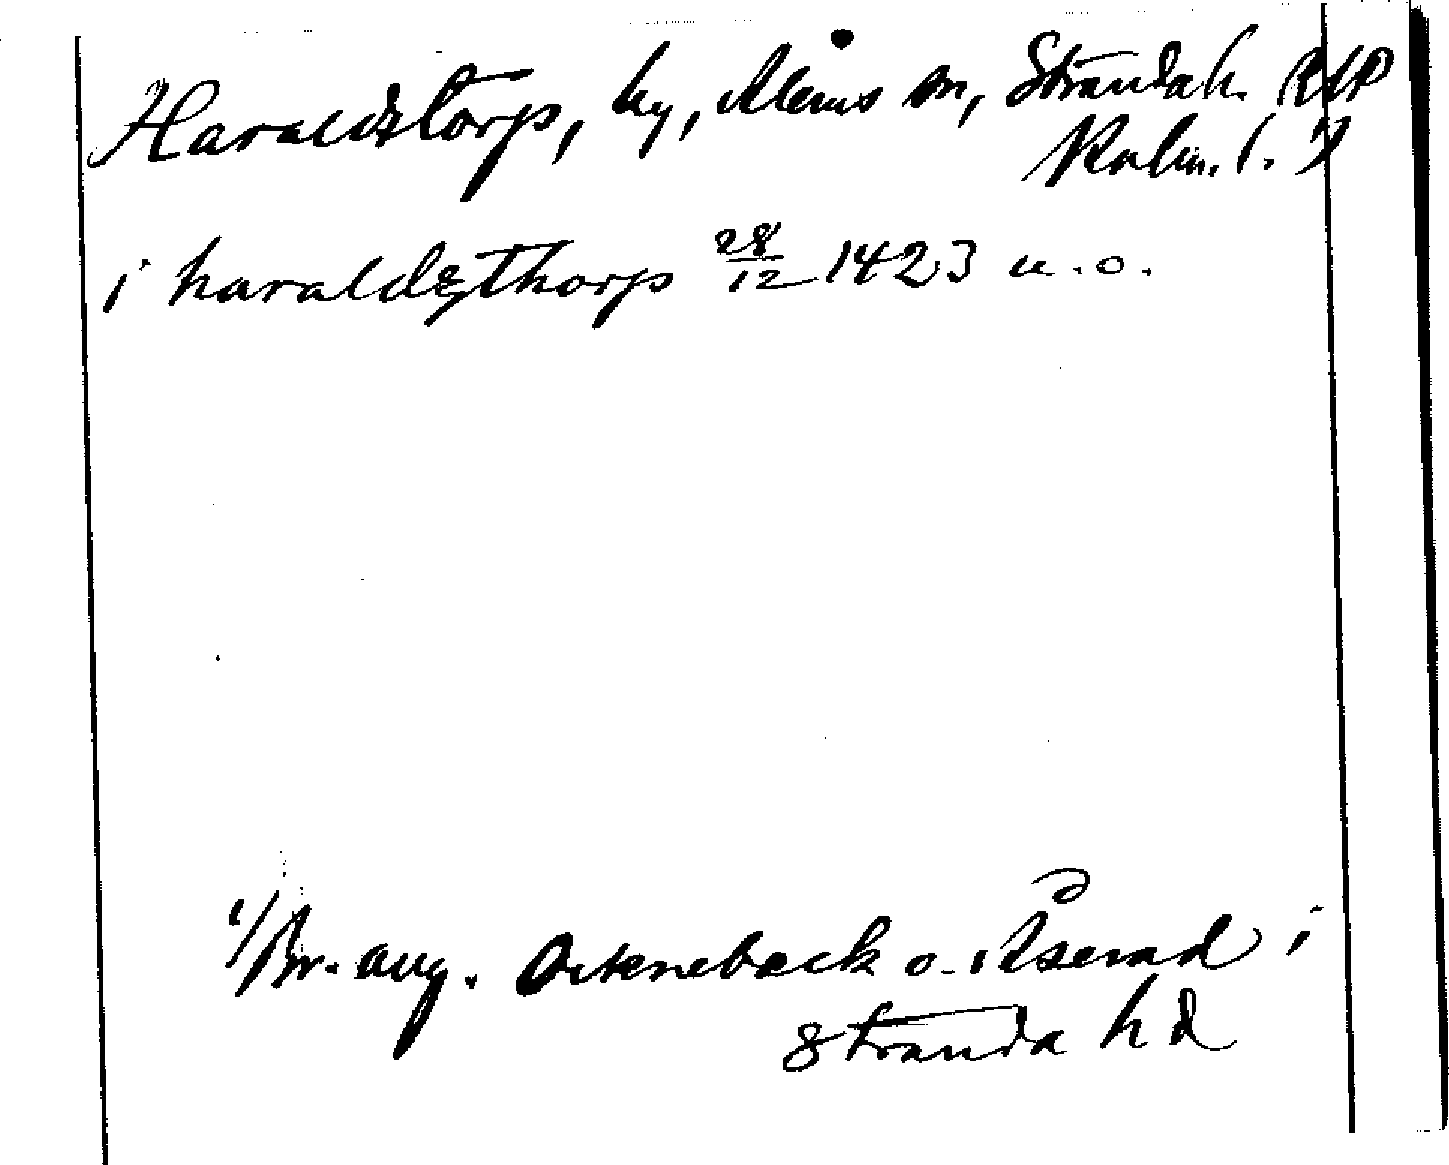 Haraldstorp, by, Ålems sn, Stranda h. RAP
Kalm. l. 1)
i haraldzthorp 28/12 1423 u.o.
1/ Br. ang. Orknebäck o. Åserad i
Stranda hd